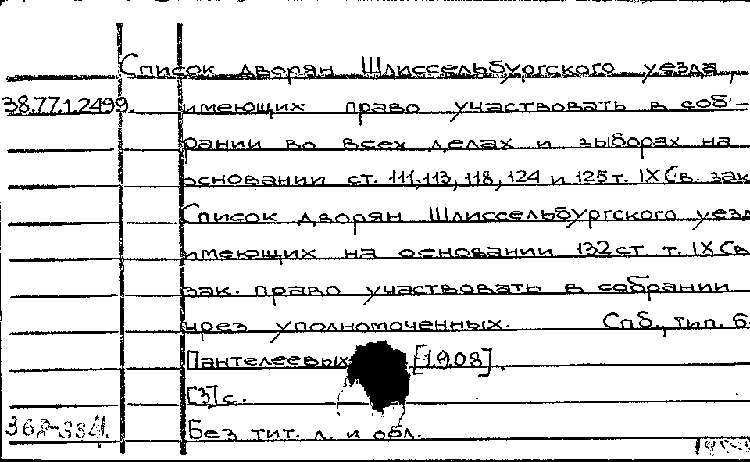 Список дворян Шлиссельбургского уезда,
38.77.1.2499. имеющих право участвовать в соб-
рании во всех делах и выборах на
основании ст. 111,113,118,124 и 125 т. IX Св. зак
Список дворян Шлиссельбургского уезд
имеющих на основании 132 ст. т. IX Св
зак. право участвовать в собрании
чрез уполномоченных. Спб., тип. б
Пантелеевых [1908].
[3] с.
Без тит. л. и обл.